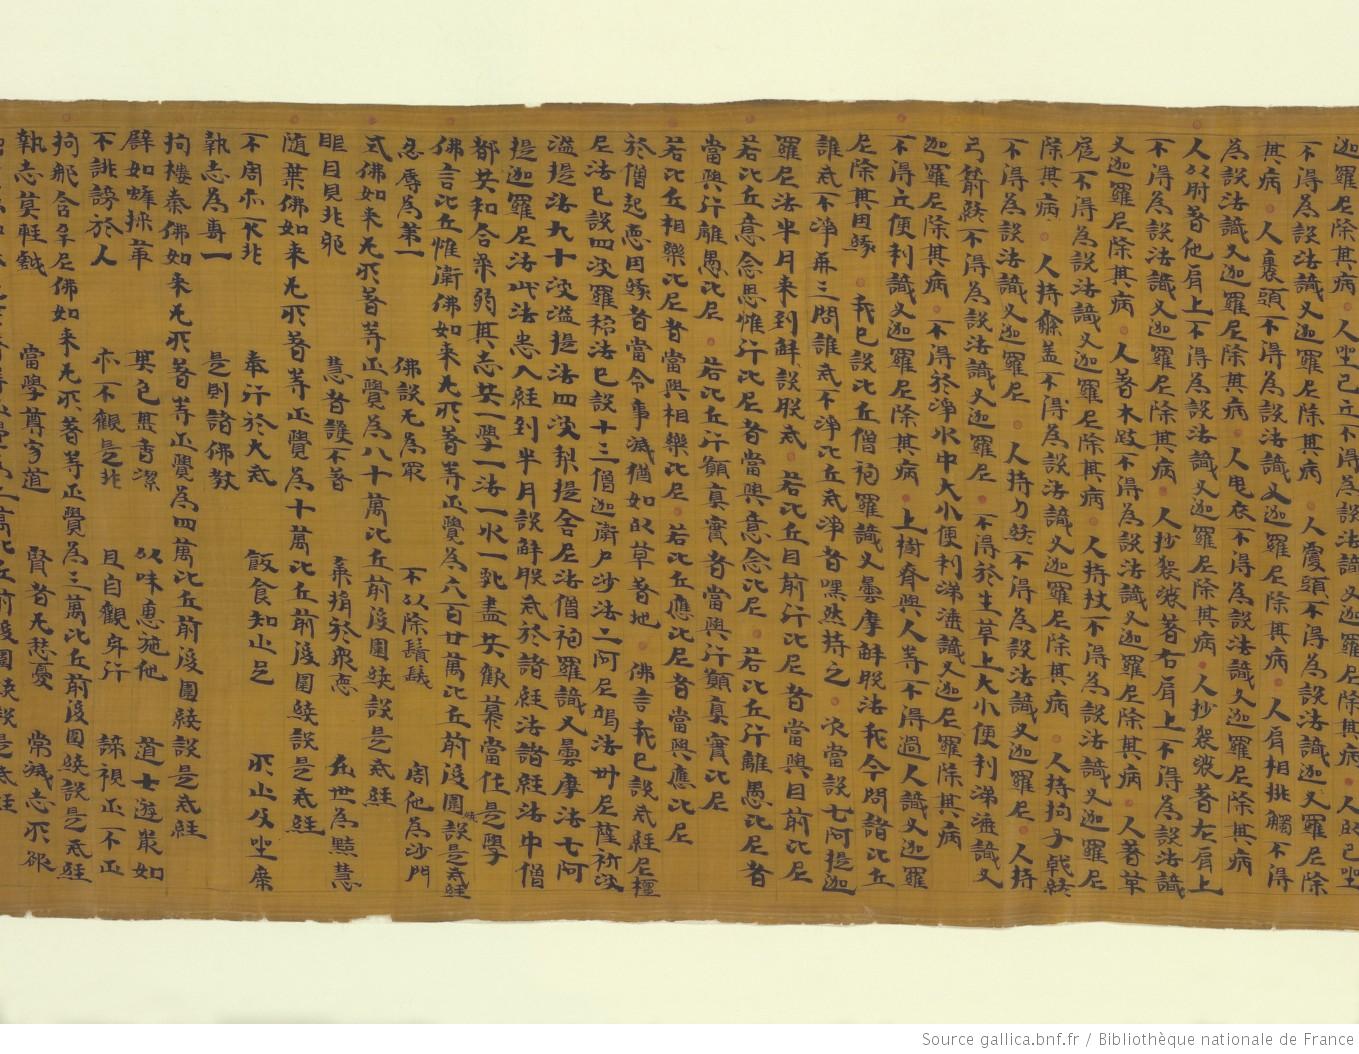 迦羅尼除其病 人坐已立不得為說法識
不得為說法識叉迦羅尼除其病 人覆頭不得為說法識叉羅尼除
其病 人裹頭不得為說法識叉迦羅尼除其病 人肩相挑觸不得
為說法識叉迦羅尼除其病 人甩衣不得為說法識叉迦羅尼除其病
人以肘著他肩上不得為說法識叉迦羅尼除其病 人抄袈裟著左肩上
不得為說法識叉迦羅尼除其病 人抄袈裟著右肩上不得為說法識
叉迦羅尼除其病 人著木跂不得為說法識叉迦羅尼除其病 人著草
屣不得為說法識叉迦羅尼除其病 人持杖不得為說法識叉迦羅尼
除其病 人持繖盖不得為說法識叉迦羅尼除其病 人持拘子戟終
不得為說法識叉迦羅尼 人持刀終不得為說法識叉迦羅尼 人持
弓箭終不得為說法識叉迦羅尼 不得於生草上大小便利涕唾識叉
迦羅尼除其病 不得於淨水中大小便利涕唾識叉迦尼羅除其病
不得立便利識叉迦羅尼除其病 上樹齊與人等不得過人識叉迦羅
尼除其因緣 我已說比丘僧祠羅識叉曇摩解脫法我今問諸比丘
誰戒不淨再三問誰戒不淨比丘戒淨者嘿然持之 次當說七阿提迦
羅尼法半月来到解說脫戒 若比丘目前行比尼者當與目前比尼
若比丘意念思惟行比尼者當與意念比尼 若比丘行離愚比尼者
當與行離愚比尼 若比丘行願真實者當與行願真實比尼
若比丘相樂比尼者當與相樂比尼 若比丘應比尼者當與應比尼
於僧起惡因緣者當令事滅猶如以草著地 佛言我已說戒經尼檀
尼法已說四波羅移法已說十三僧迦衛尸沙法二阿尼竭法卅尼薩祈波
滋提法九十波滋提法四波梨提舍尼法僧祠羅識叉曇摩法七阿
提迦羅尼法此法悉入經到半月說解脫戒於諸經法諸經法中僧
都共知合衆窮其志共一學一法一水一乳盡共歡慕當住是學
佛言比丘惟衛佛如来无所著等正覺為六百廿萬比丘前後圍繞說是戒經
忍辱為第一 佛說无為最 不以除鬚髮 害他為沙門
式佛如来无所著等正覺為八十萬比丘前後圍繞說是戒經
眼目見非邪 慧者護不著 棄捐於衆惡 在世為黠慧
隨葉佛如来无所著等正覺為十萬比丘前後圍繞說是戒經
不害亦不非 奉行於大戒 飯食知止足 所止及坐床
執志為專一 是則諸佛教
拘樓秦佛如来无所著等正覺為四萬比丘前後圍繞說是戒經
譬如蜂採華 其色甚香潔 以味惠施他 道士遊聚如
不誹謗於人 亦不觀是非 且自觀身行 諦視正不正
拘那含牟尼佛如来无所著等正覺為三萬比丘前後圍繞說是戒經
執志莫輕戲 當學尊家道 賢者无愁憂 常滅志所欲